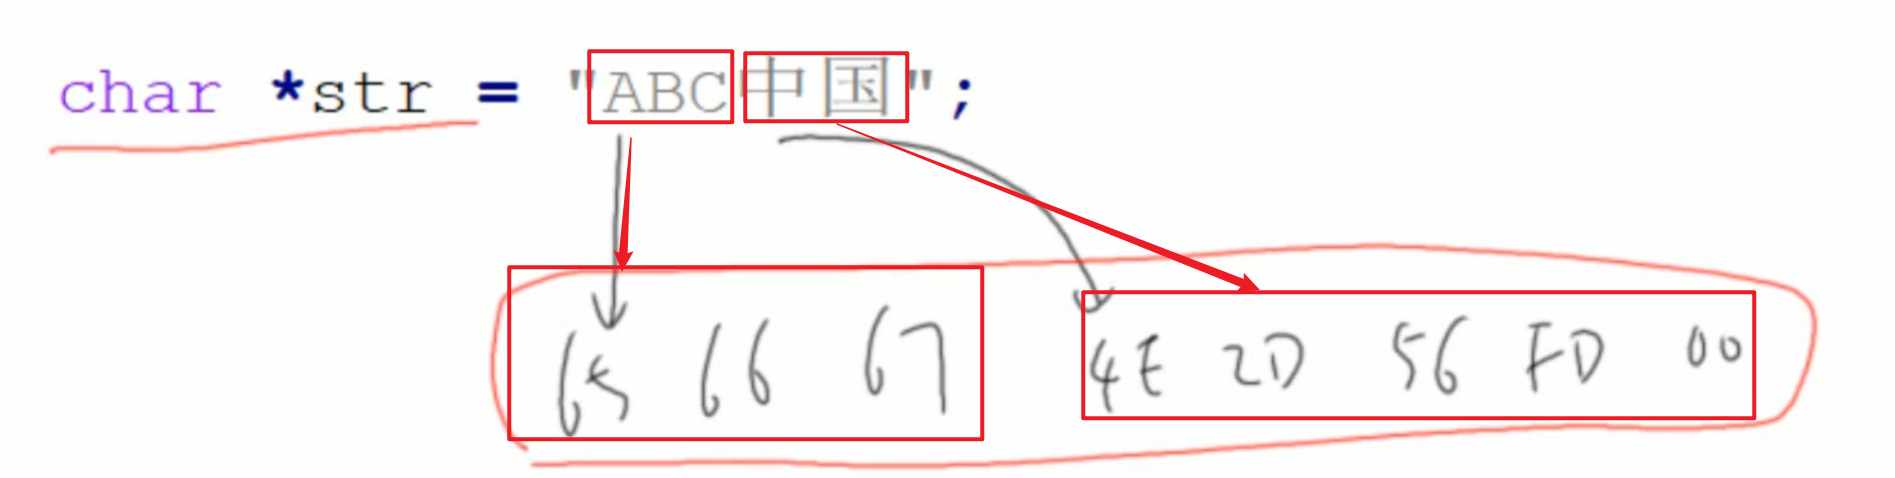 char *str = "ABC中国";
65 66 67 4E 2D 56 FD 00